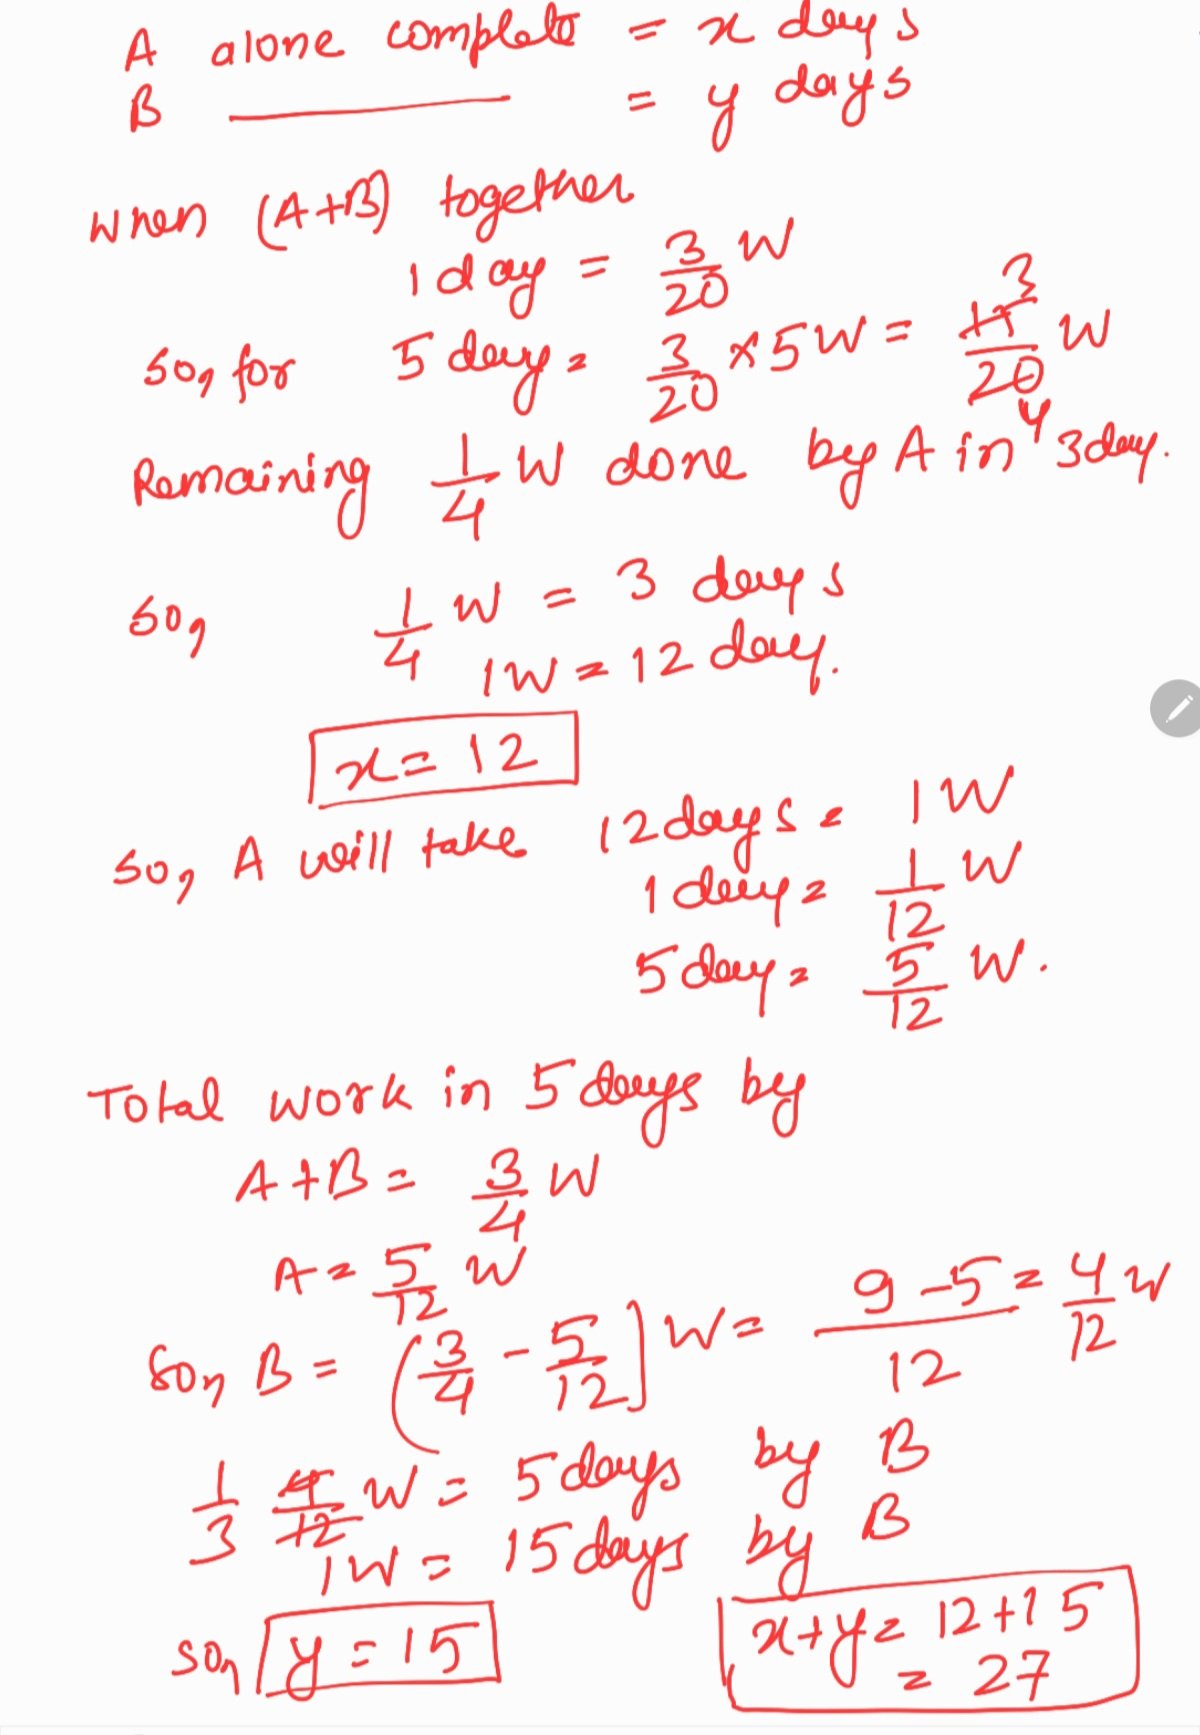 A alone complete = x days
B ——— = y days
when (A+B) together
1 day = 3/20 W
so, for 5 day = 3/20 × 5W = 15/20 W 3/4
Remaining 1/4 W done by A in 3 day.
so, 1/4 W = 3 days
1W = 12 day.
x = 12
so, A will take 12 days = 1W
1 day = 1/12 W
5 day = 5/12 W.
Total work in 5 days by
A+B = 3/4 W
A = 5/12 W
so, B = (3/4 - 5/12] W = 9-5/12 = 4/12 W
1/3 4/12 W = 5 days by B
1W = 15 days by B
so, y = 15
x+y = 12+15
= 27